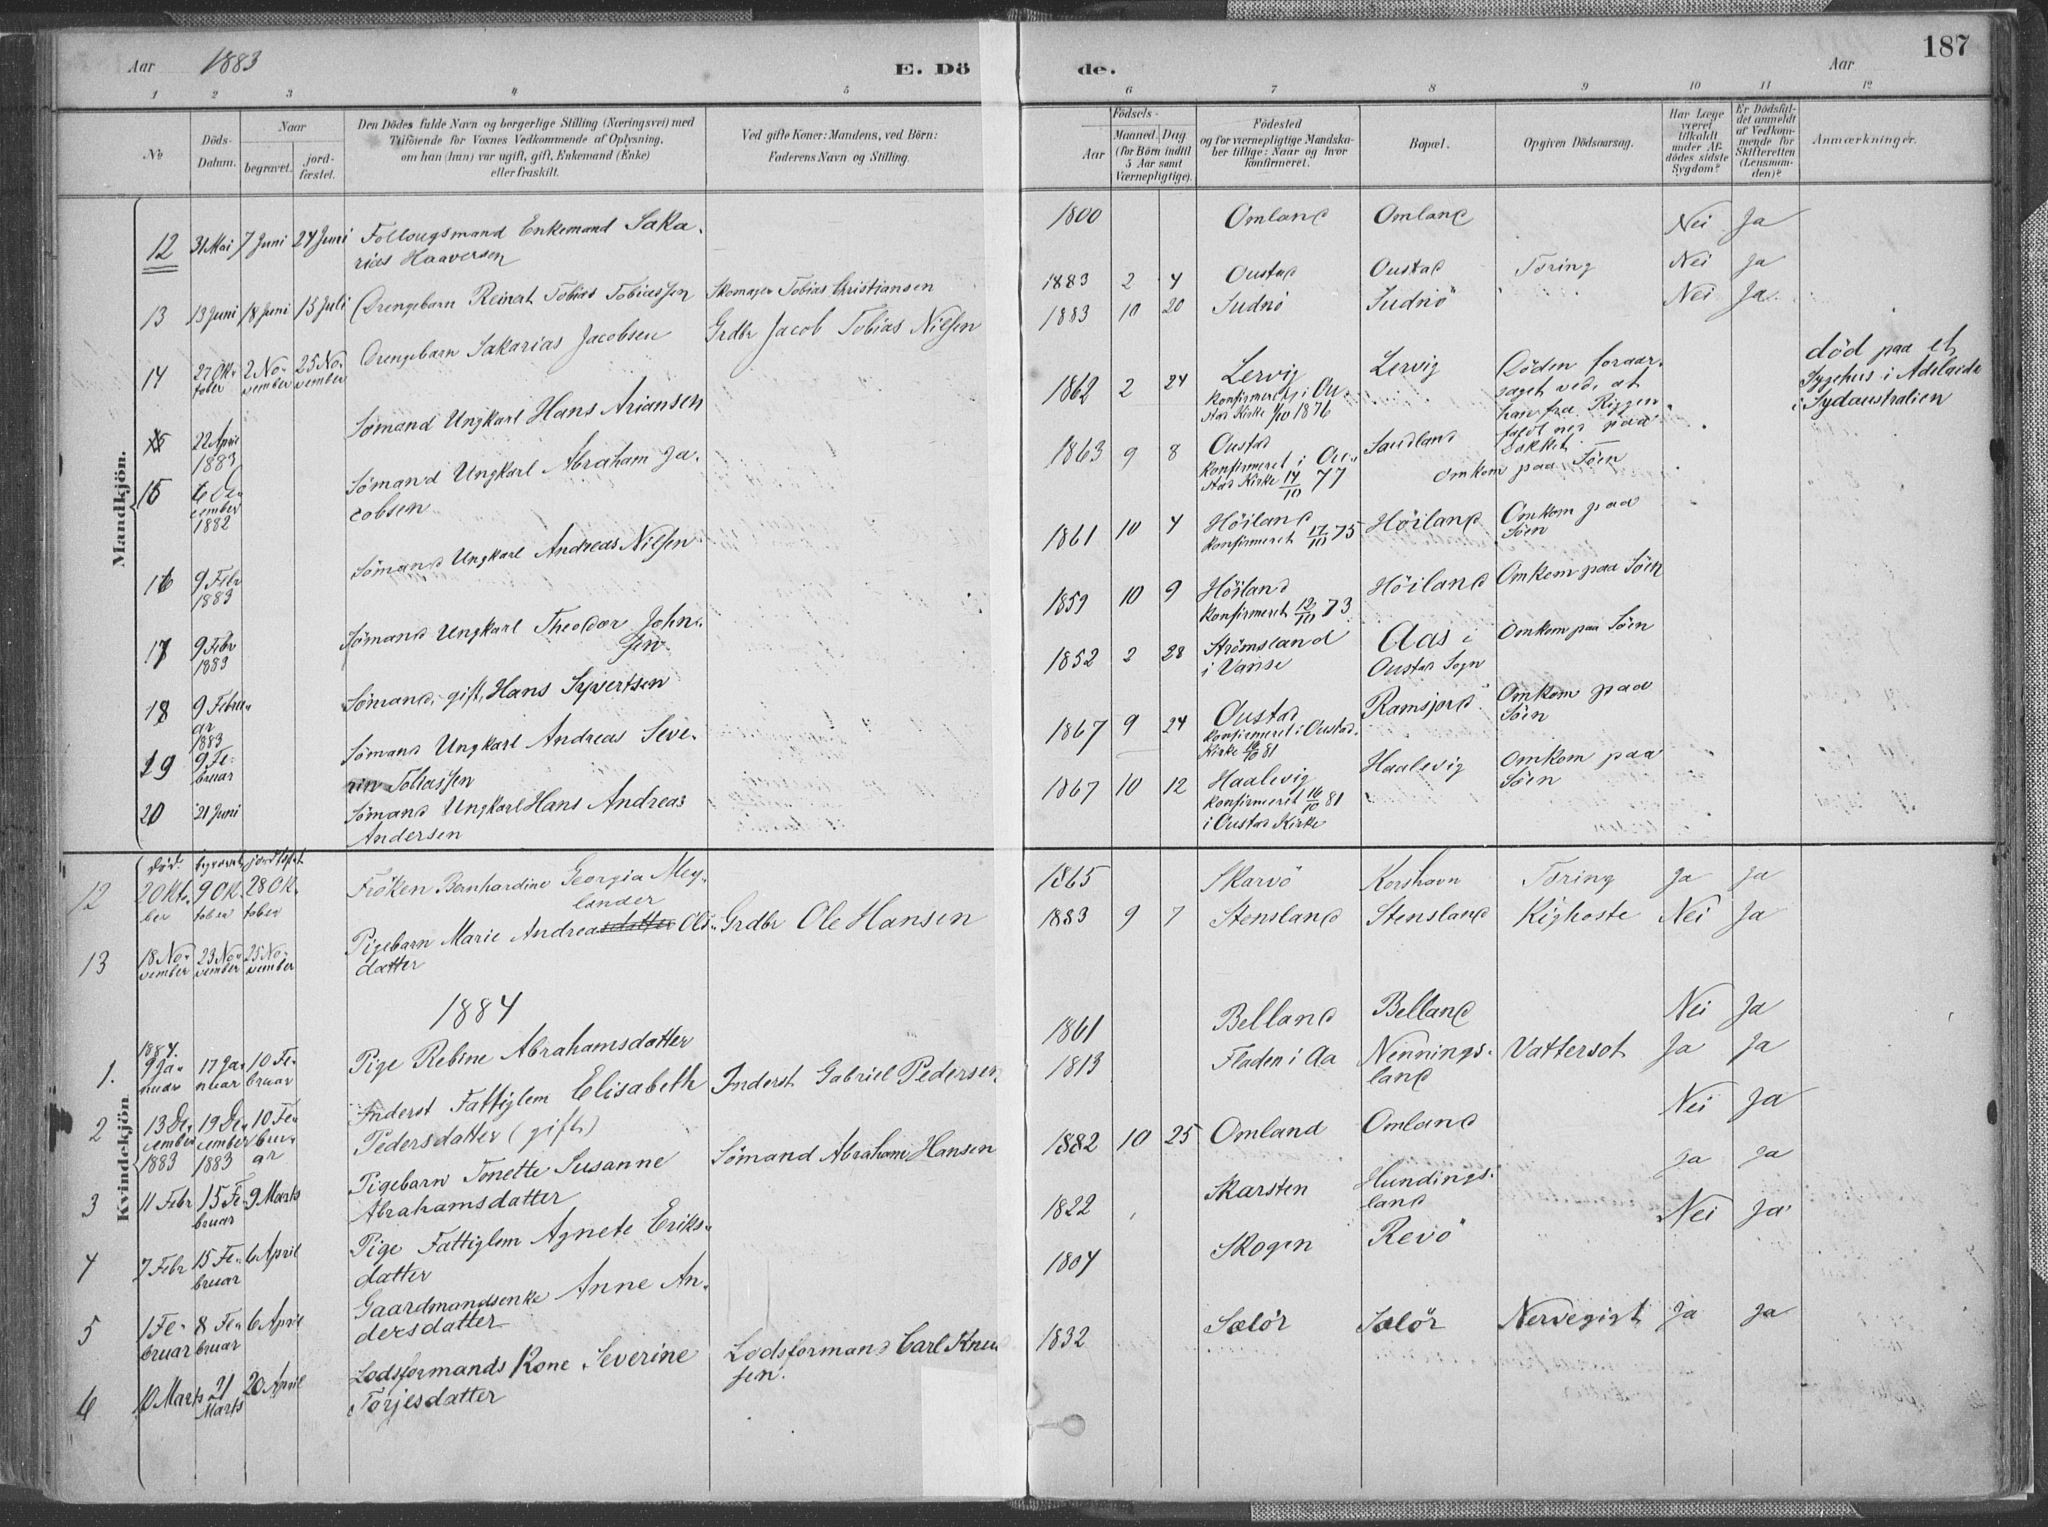 Aar 1883 E. Dö de. Aar 187
1 2 3 4 5 6 7 8 9 10 11 12
No
Döds-
Datum.
Naar
begravet.
jord-
fæstet.
Den Dödes fulde Navn og borgerlige Stilling (Næringsvei) med
Tilföiende for Voxnes Vedkommende af Oplysning,
om han (hun) var ugift, gift, Enkemand (Enke)
eller fraskilt.
Ved gifte Koner: Mandens, ved Börn:
Faderens Navn og Stilling.
Födsels-
Aar
Maaned.
Dag
(for Börn indtil
5 Aar samt
Værnepligtige).
Födested
og for værnepligtige Mandska-
ber tillige: Naar og hvor
konfirmeret.
Bopæl.
Opgiven Dödsaarsag.
Har Læge
været
tilkaldt
under Af-
dödes sidste
Sygdom?
Er Dödsfal-
det anmeldt
af Vedkom-
mende for
Skifteretten
(Lensman-
den)?
Anmærkninger.
Mandkjön.
12 31 Mai 7 Juni 24 Juni Follougsmand Enkemand Saka-
rias Haaversen
1800 Omland Omland Nei Ja
13 13 Juni 18 Juni 15 Juli Drengebarn Reinert Tobias Tobiassen Skomager Tobias Christiansen
1883 2 4 Oustad Oustad Tæring Nei Ja
14 27 Ok-
tober 2 No-
vember 25 No-
vember Drengebarn Sakarias Jacobsen Grdbr Jacob Tobias Nilsen
1883 10 20 Sudnö Sudnö Nei Ja
15 22 April
1883 Sømand Ungkarl Hans Ariansen
1862 2 24 Lervig
konfirmeret i Ou-
stad Kirke 1/10 1876 Lervig Döden foraar-
saget ved, at
han fra Riggen
faldt ned paa
Dækket
död paa et
Sygehus i Adelaide
i Sydaustralien
15 6 De-
cember
1882 Sömand Ungkarl Abraham Ja-
cobsen
1863 9 8 Oustad
konfirmeret i Ou-
stad Kirke 14/10 77 Sandland omkom paa Söen
16 9 Febr
1883 Sömand Ungkarl Andreas Nilsen
1861 10 4 Höiland
konfirmeret 17/10 75 Höiland Omkom paa
Söen
17 9 Febr
1883 Sömand Ungkarl Theodor John-
sen
1859 10 9 Höiland
konfirmeret 12/10 73 Höiland Omkom paa Söen
18 9 Febru-
ar
1883 Sömand, gift, Hans Syvertsen
1852 2 28 Strömsland
i Vanse Aas i
Oustad Sogn Omkom paa Söen
19 9 Fe-
bruar Sömand Ungkarl Andreas Seve-
rin Tobiassen
1867 9 24 Oustad
konfirmeret i Oustad
Kirke 16/10 81 Ramsjord Omkom paa
Söen
20 21 Juni Sömand Ungkarl Hans Andreas
Andersen
1867 10 12 Haalevig
konfirmeret 16/10 81
i Oustad Kirke Haalevig Omkom paa
Söen
Kvindekjön
död. begravet jordfæstet
12 2 Okto-
ber 9 Ok-
tober 28 Ok-
tober Fröken Bernhardine Georgia Mey-
lander
1865 Skarvö Korshavn Tæring Ja Ja
13 18 No-
vember 23 No-
vember 25 No-
vember Pigebarn Marie Andreasdatter Ols-
datter Grdbr Ole Hansen
1883 9 7 Stensland Stensland Kighoste Nei Ja
1884
1. 1884.
9 Ja-
nuar 17 Ja-
nuar 10 Fe-
bruar Pige Rebine Abrahamsdatter
1861 Belland Belland Nei Ja
2 13 De-
cember
1883 19 De-
cember
1883 10 Fe-
bru-
ar Inderst Fattiglem Elisabeth
Pedersdatter (gift) Inderst Gabriel Pedersen
1813 Fladen i Aa Nennings-
land Vattersot Ja Ja
3 11 Febr 15 Fe-
bruar 9 Marts Pigebarn Tonette Susanne
Abrahamsdatter Sömand Abraham Hansen
1882 10 25 Omland Omland Nei Ja
4 7 Febr 15 Fe-
bruar 6 April Pige Fattiglem Agnete Eriks-
datter
1822 Skarsten Hundings-
land Ja Ja
5 1 Fe-
bruar 8 Fe-
bruar 6 April Gaardmandsenke Anne An-
dersdatter
1804 Skogen Revö Nei Ja
6 10 Marts 21
Marts 20 April Lodsformands Kone Severine
Torjesdatter Lodsformand Carl Knud
sen.
1832 Sælör Sælör Nervegigt Ja Ja